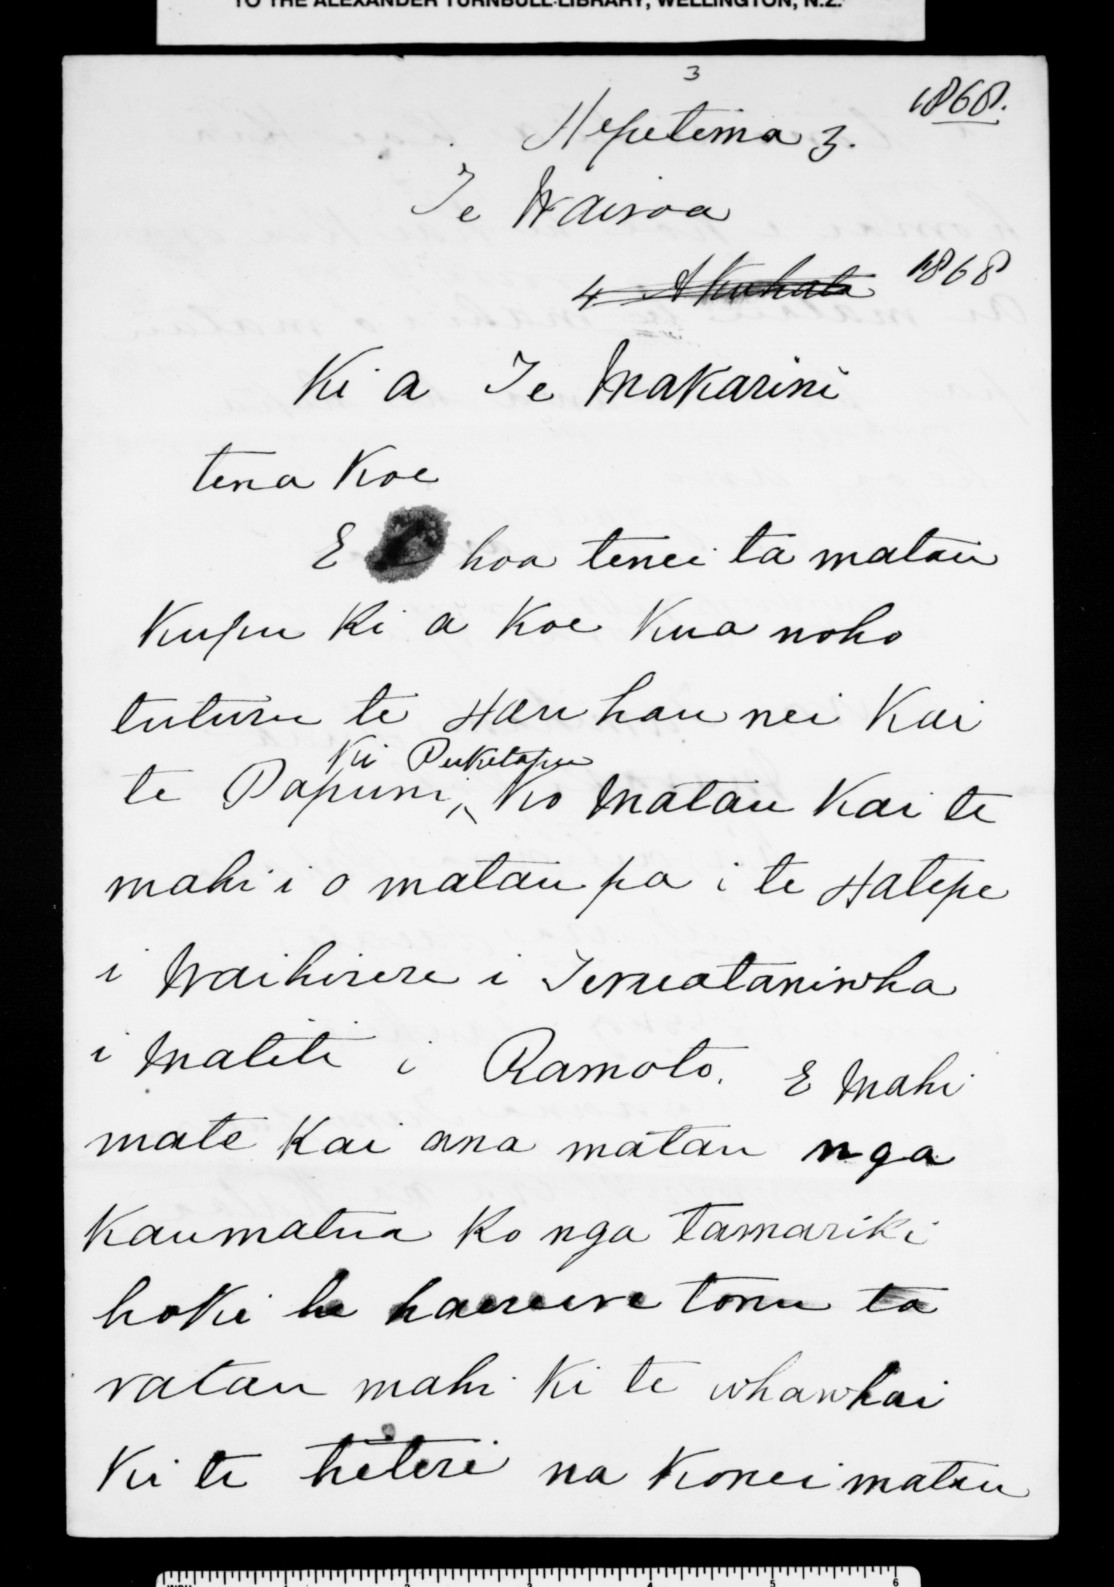 TO THE ALEXANDER TURNBULL LIBRARY, WELLINGTON, N.Z.
3
1868.
Hepetima 3.
Te Wairoa
4 Akuhata 1868
Ki a Te Makarini
tena Koe
E hoa tenei ta matau
Kupu Ki a Koe Kua noho
tuturu te Hau hau nei Kai
Ki Puketapu
te Papuni, Ko Matau Kai te
mahi i o matau pa i te Hatepe
i Waihirere i Teruataniwha
i Matiti i Ramoto. E Mahi
mate Kai ana matau nga
Kaumatua Ko nga tamariki
hoki he haereere tonu ta
ratau mahi Ki te whawhai
Ki te titiri na Konei matau
1 2 3 4 5 6